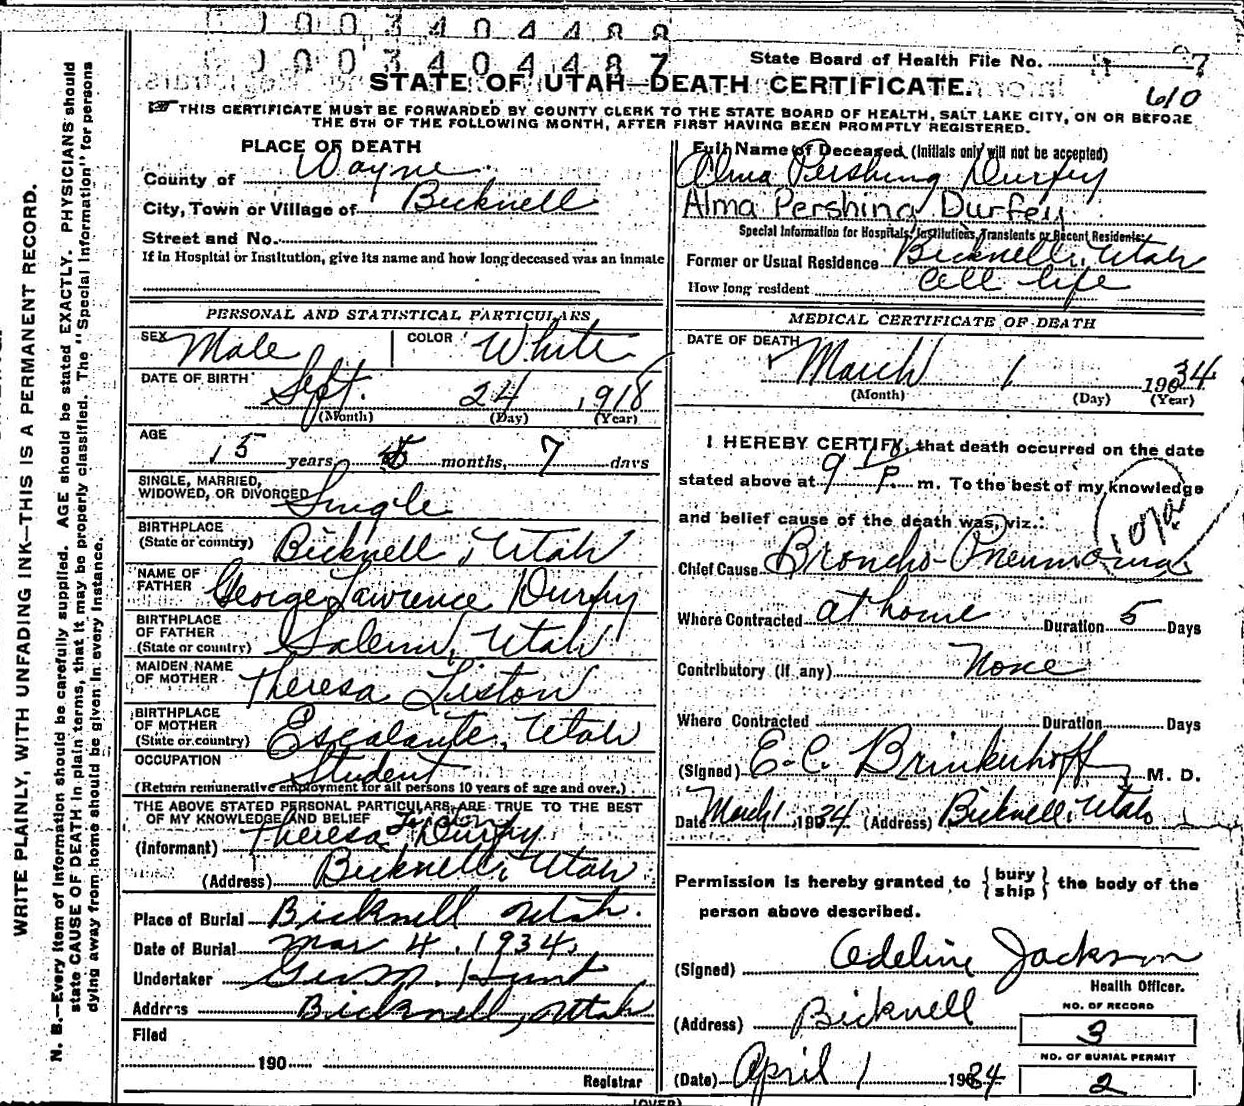 0003404488
0003404487
State Board of Health File No. 7
STATE OF UTAH—DEATH CERTIFICATE.
610
THIS CERTIFICATE MUST BE FORWARDED BY COUNTY CLERK TO THE STATE BOARD OF HEALTH, SALT LAKE CITY, ON OR BEFORE
THE 5TH OF THE FOLLOWING MONTH, AFTER FIRST HAVING BEEN PROMPTLY REGISTERED.
WRITE PLAINLY, WITH UNFADING INK—THIS IS A PERMANENT RECORD.
N. B.—Every item of information should be carefully supplied. AGE should be stated EXACTLY. PHYSICIANS should
state CAUSE OF DEATH in plain terms, that it may be properly classified. The "Special Information" for persons
dying away from home should be given in every instance.
PLACE OF DEATH
County of Wayne
City, Town or Village of Bicknell
Street and No.
If in Hospital or Institution, give its name and how long deceased was an inmate
PERSONAL AND STATISTICAL PARTICULARS
SEX Male COLOR White
DATE OF BIRTH Sept. 24 1918
(Month) (Day) (Year)
AGE
15 years 5 months, 7 days
SINGLE, MARRIED,
WIDOWED, OR DIVORCED Single
BIRTHPLACE
(State or country) Bicknell, Utah
NAME OF
FATHER George Lawrence Durfey
BIRTHPLACE
OF FATHER
(State or country) Salem, Utah
MAIDEN NAME
OF MOTHER Theresa Liston
BIRTHPLACE
OF MOTHER
(State or country) Escalante, Utah
OCCUPATION Student
(Return remunerative employment for all persons 10 years of age and over.)
THE ABOVE STATED PERSONAL PARTICULARS ARE TRUE TO THE BEST
OF MY KNOWLEDGE AND BELIEF
(Informant) Theresa Liston Durfey
(Address) Bicknell, Utah
Place of Burial Bicknell Utah.
Date of Burial Mar 4, 1934.
Undertaker Hunt
Address Bicknell, Utah
Filed
190
Registrar
Full Name of Deceased (Initials only will not be accepted)
Alma Pershing Durfey
Alma Pershing Durfey
Special Information for Hospitals, Institutions, Transients or Recent Residents:
Former or Usual Residence Bicknell, Utah
How long resident all life
MEDICAL CERTIFICATE OF DEATH
DATE OF DEATH
March 1 19034
(Month) (Day) (Year)
I HEREBY CERTIFY, that death occurred on the date
stated above at 9 P. m. To the best of my knowledge
and belief cause of the death was, viz.:
107a
Chief Cause Broncho-Pneumonia
Where Contracted at home Duration 5 Days
Contributory (if any) None
Where Contracted Duration Days
(Signed) E. C. Brinkerhoff, M. D.
Date March 1 1934 (Address) Bicknell, Utah
Permission is hereby granted to {bury ship} the body of the
person above described.
(Signed) Adeline Jackson
Health Officer.
(Address) Bicknell
NO. OF RECORD
3
NO. OF BURIAL PERMIT
2
(Date) April 1 1934
(OVER)